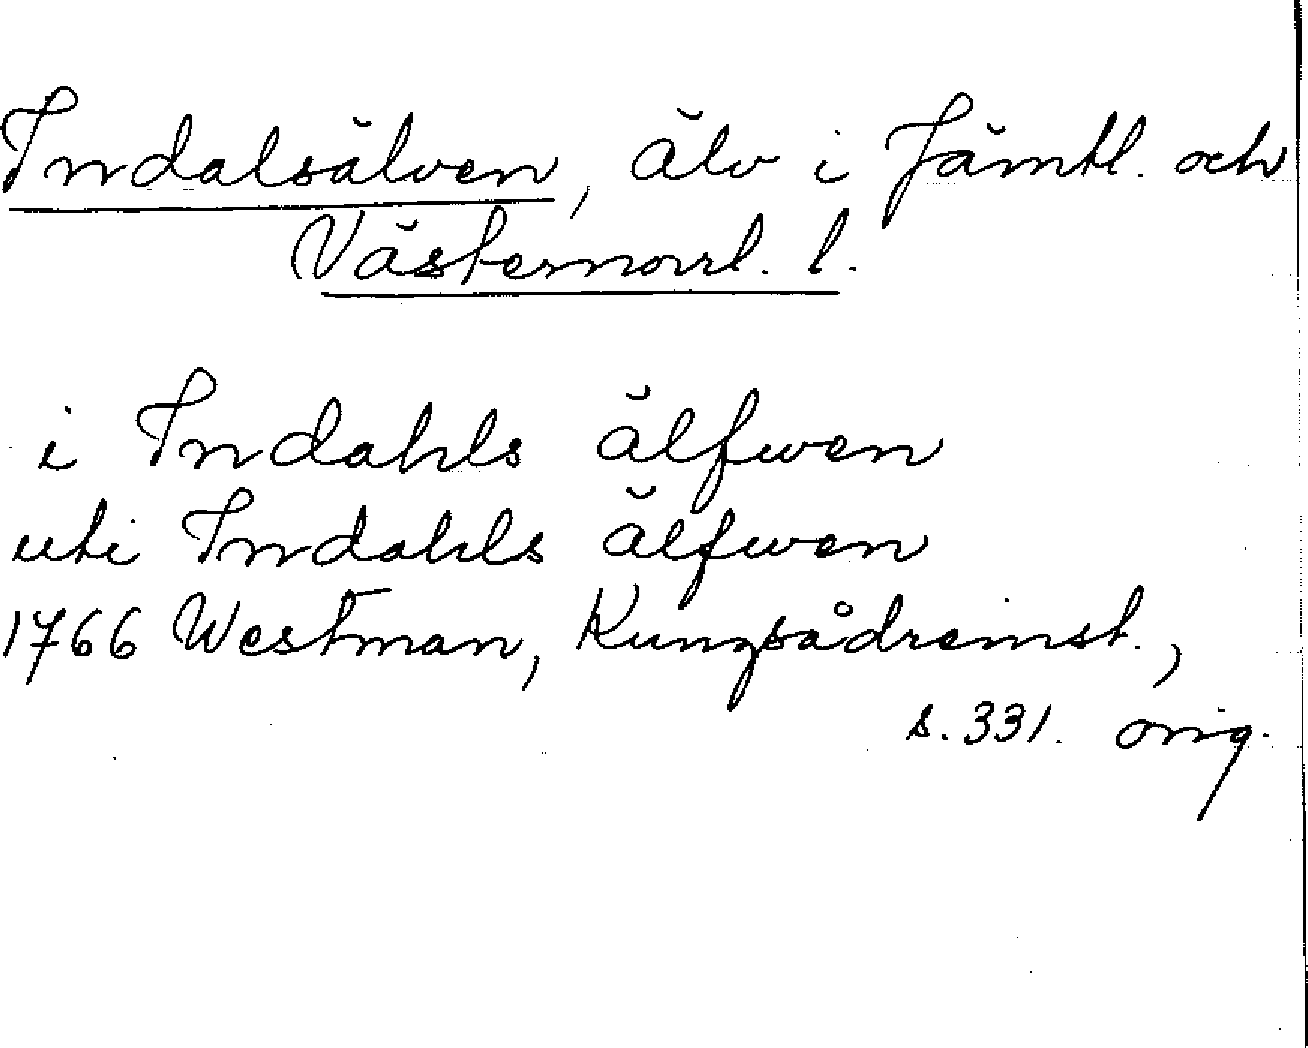 Indalsälven, älv i Jämtl. och
Västernorrl. l.
i Indahls älfwen
uti Indahls älfwen
1766 Westman, Kungsådreinst.,
s. 331. orig.